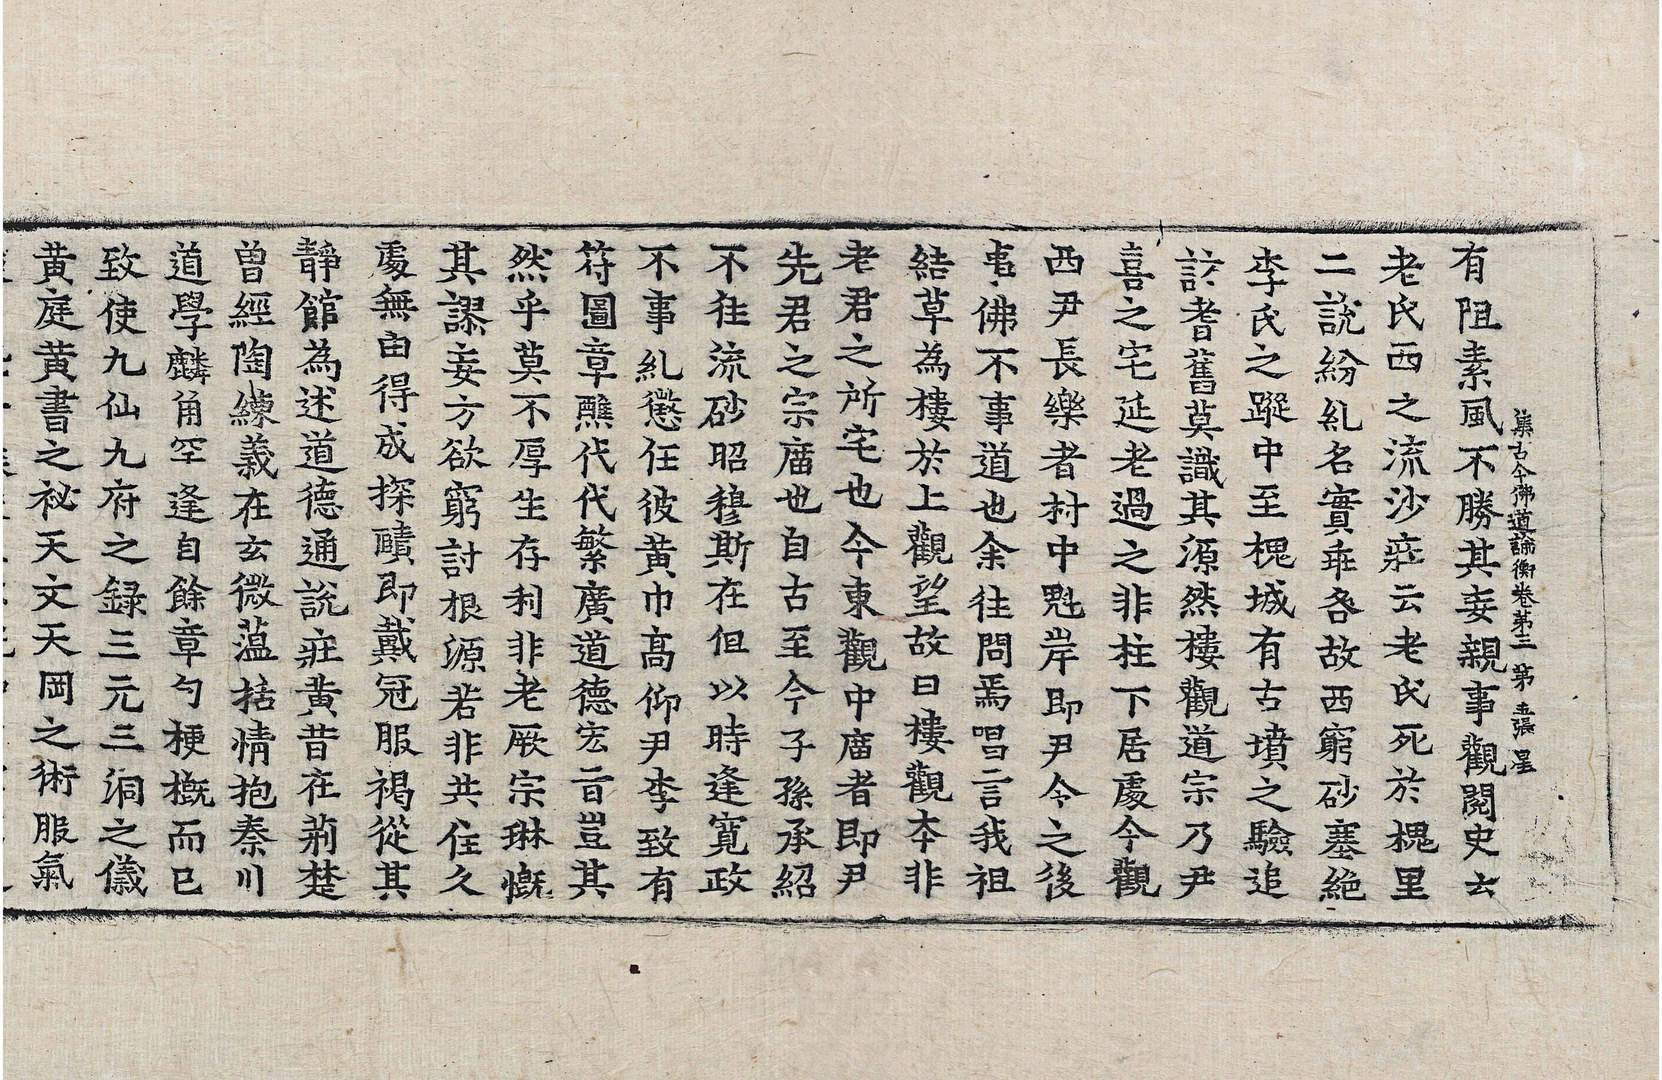 集古今佛道論衡卷第三 第五張 星
有阻素風不勝其妄親事觀閱史云
老氏西之流沙疵云老氏死於槐里
二說紛乱名實乖各故西窮砂塞絶
李氏之蹤中至槐城有古墳之驗追
訪耆舊莫識其源然樓觀道宗乃尹
喜之宅延老過之非柱下居處今觀
西尹長樂者村中魁岸即尹令之後
事佛不事道也余往問焉唱言我祖
結草為樓於上觀望故曰樓觀本非
老君之所宅也今東觀中庿者即尹
先君之宗庿也自古至今子孫承紹
不往流砂昭穆斯在但以時逢寛政
不事乱懲任彼黄巾髙仰尹李致有
符圖章醮代代繁廣道德宏言豈其
然乎莫不厚生存利非老厥宗琳慨
其謬妄方欲窮討根源若非共住久
處無由得成探賾即戴冠服褐從其
靜館為述道德通說莊黄昔在荊楚
曽經陶練義在玄微薀括情抱秦川
道學麟角罕逢自餘章勾梗概而已
致使九仙九府之録三元三洞之儀
黄庭黄書之祕天文天岡之術服氣